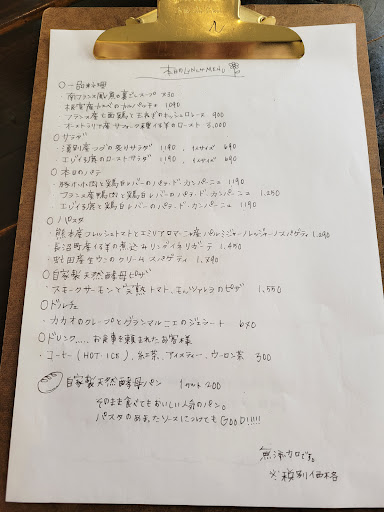 本日のLUNCH MENU
○一品料理
・南フランス風魚の裏ごしスープ 830
・根室産カスベのカルパッチョ 1090
・フランス産と鶏と玉ねぎのキッシュロレーヌ 900
・オーストラリア産サフォーク種仔羊のロースト 3,000
○サラダ
・浜別産ツブの炙りサラダ 1190、1人サイズ 690
・エゾイシ鹿のローストサラダ 1190、1人サイズ 690
○本日のパテ
・豚ホホ肉と鶏白レバーのパテ・ド・カンパーニュ 1190
・フランス産鴨肉と鶏白レバーのパテ・ド・カンパーニュ 1,250
・エゾイシ鹿と鶏白レバーのパテ・ド・カンパーニュ 1190
○パスタ
・熊本産フレッシュトマトとエミリアロマーニャ産パルミジャーノレジャーノスパゲティ 1,290
・長沼町産仔羊の煮込みリングイネリガーテ 1,450
・産生ウニのクリームスパゲティ 1,890
○自家製天然酵母ピザ
・スモークサーモンと完熟トマト、モッツァレラのピザ 1,550
○ドルチェ
・カカオのクレープとグランマルニエのジェラート 690
○ドリンク.....お食事を頼まれたお客様
・コーヒー(HOT・ICE)、紅茶、アイスティー、ウーロン茶 300
自家製天然酵母パン 1カット 200
そのまま食べてもおいしい人気のパン。
パスタのあまったソースにつけてもGOOD!!!!!
無添加です。
※税別価格